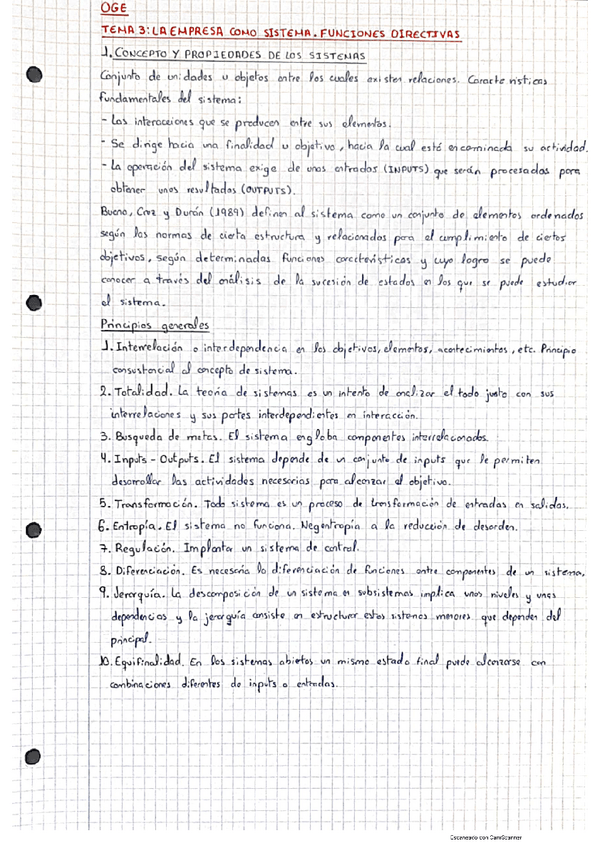 OGE
TEMA 3: LA EMPRESA COMO SISTEMA. FUNCIONES DIRECTIVAS
1. CONCEPTO Y PROPIEDADES DE LOS SISTEMAS
Conjunto de unidades u objetos entre los cuales existen relaciones. Características
fundamentales del sistema:
- Las interacciones que se producen entre sus elementos.
- Se dirige hacia una finalidad u objetivo, hacia la cual está encaminada su actividad.
- La operación del sistema exige de unas entradas (INPUTS) que serán procesadas para
obtener unos resultados (OUTPUTS).
Bueno, Cruz y Durán (1989) definen al sistema como un conjunto de elementos ordenados
según las normas de cierta estructura y relacionados para el cumplimiento de ciertos
objetivos, según determinadas funciones características y cuyo logro se puede
conocer a través del análisis de la sucesión de estados en los que se puede estudiar
el sistema.
Principios generales
1. Interrelación o interdependencia en los objetivos, elementos, acontecimientos, etc. Principio
consustancial al concepto de sistema.
2. Totalidad. La teoría de sistemas es un intento de analizar el todo junto con sus
interrelaciones y sus partes interdependientes en interacción.
3. Busqueda de metas. El sistema engloba componentes interrelacionados.
4. Inputs - Outputs. El sistema depende de un conjunto de inputs que le permiten
desarrollar las actividades necesarias para alcanzar al objetivo.
5. Transformación. Todo sistema es un proceso de transformación de entradas en salidas.
6. Entropía. El sistema no funciona. Negentropía a la reducción de desorden.
7. Regulación. Implantar un sistema de control.
8. Diferenciación. Es necesaria la diferenciación de funciones entre componentes de un sistema.
9. Jerarquía. La descomposición de un sistema en subsistemas implica unos niveles y unas
dependencias y la jerarquía consiste en estructurar estos sistemas menores que dependen del
principal.
10. Equifinalidad. En los sistemas abiertos un mismo estado final puede alcanzarse con
combinaciones diferentes de inputs o entradas.
Escaneado con CamScanner